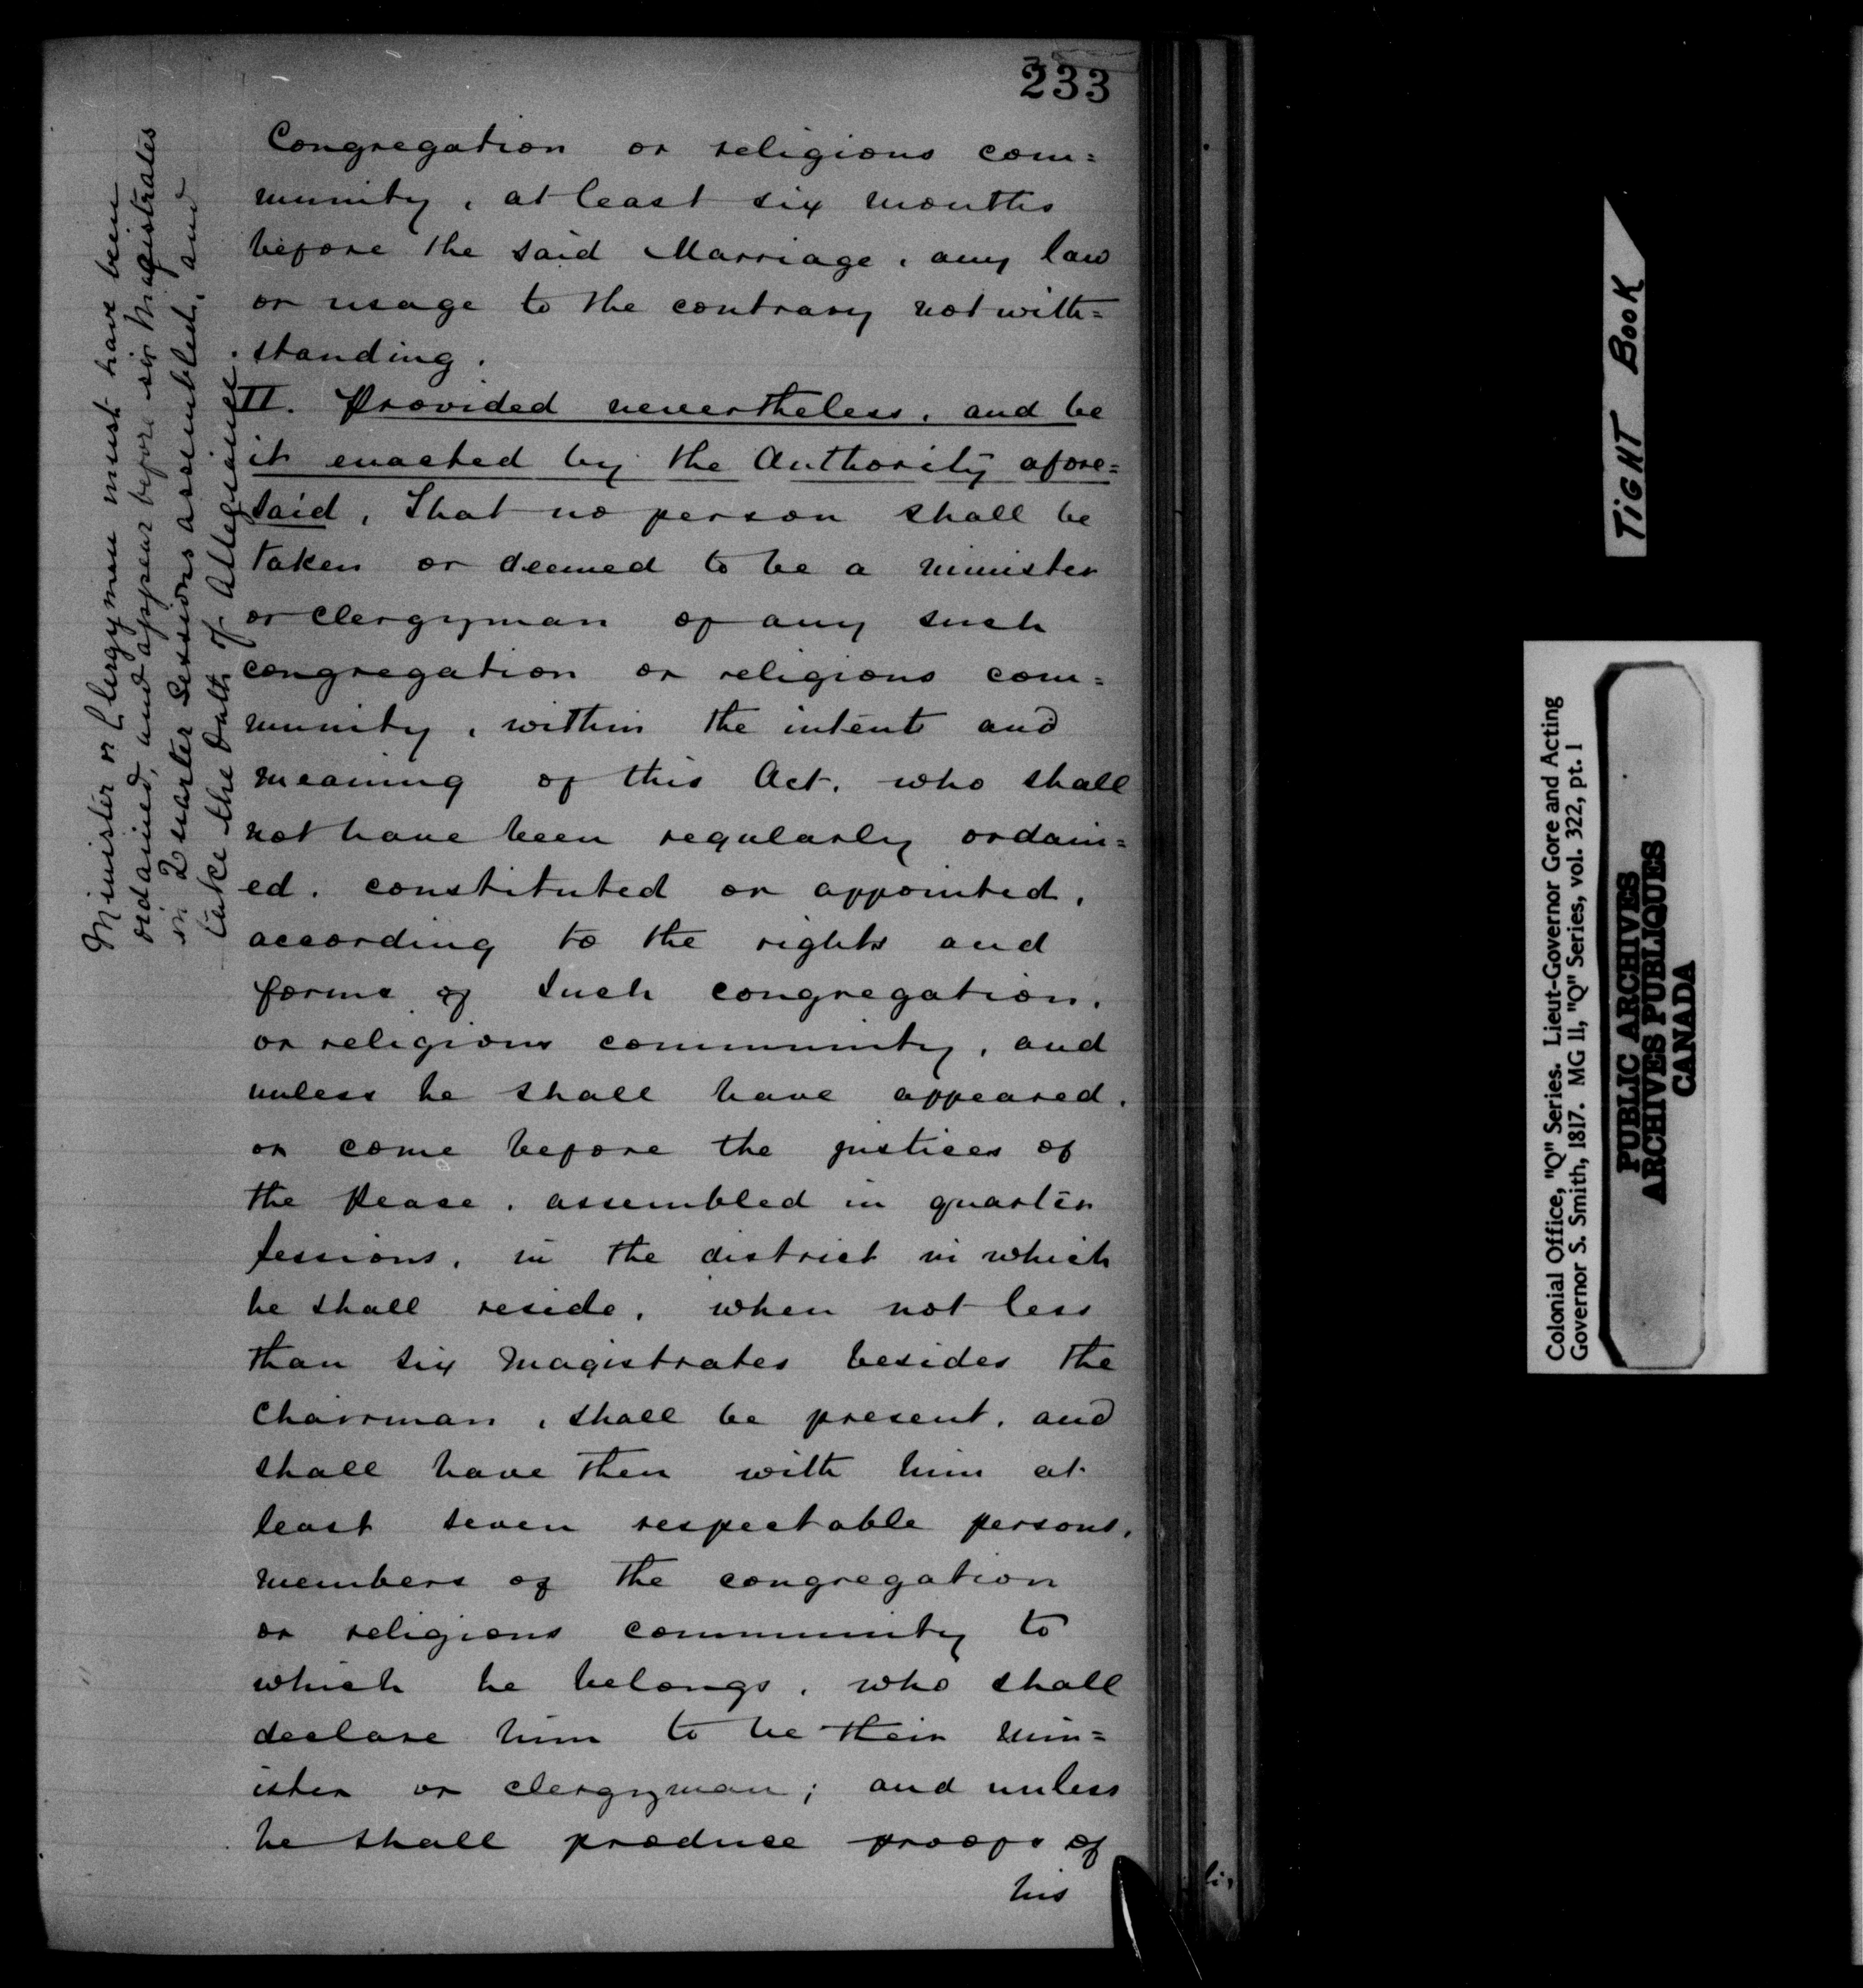 233
Congregation or religious com=
munity, at least six months
before the said Marriage, any law
or usage to the contrary notwith=
standing.
II. Provided nevertheless, and be
it enacted by the Authority afore=
said, That no person shall be
taken or deemed to be a minister
or clergyman of any such
congregation or religious com=
munity, within the intent and
meaning of this Act, who shall
not have been regularly ordain=
ed, constituted or appointed,
according to the rights and
forms of such congregation,
or religious community, and
unless he shall have appeared,
or come before the justices of
the Peace, assembled in quarter
sessions, in the district in which
he shall reside, when not less
than six Magistrates besides the
Chairman, shall be present, and
shall have then with him at
least seven respectable persons,
members of the congregation
or religious community to
which he belongs, who shall
declare him to be their min=
ister or clergyman; and unless
he shall produce proofs of
his
Minister or Clergyman must have been
ordained, and appear before six Magistrates
in Quarter Sessions assembled, and
take the Oath of Allegiance.
TIGHT BOOK
Colonial Office, "Q" Series. Lieut-Governor Gore and Acting
Governor S. Smith, 1817. MG 11, "Q" Series, vol. 322, pt. 1
PUBLIC ARCHIVES
ARCHIVES PUBLIQUES
CANADA